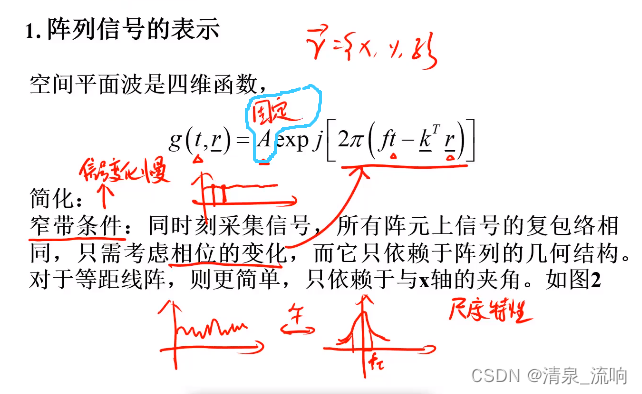 1. 阵列信号的表示
r⃗ = {x, y, z}
空间平面波是四维函数，
固定
g(t,r) = A exp j[2π(ft − k^T r)]
信号变化慢
简化：
窄带条件：同时刻采集信号，所有阵元上信号的复包络相
同，只需考虑相位的变化，而它只依赖于阵列的几何结构。
对于等距线阵，则更简单，只依赖于与x轴的夹角。如图2
尺度特性
CSDN @清泉_流响